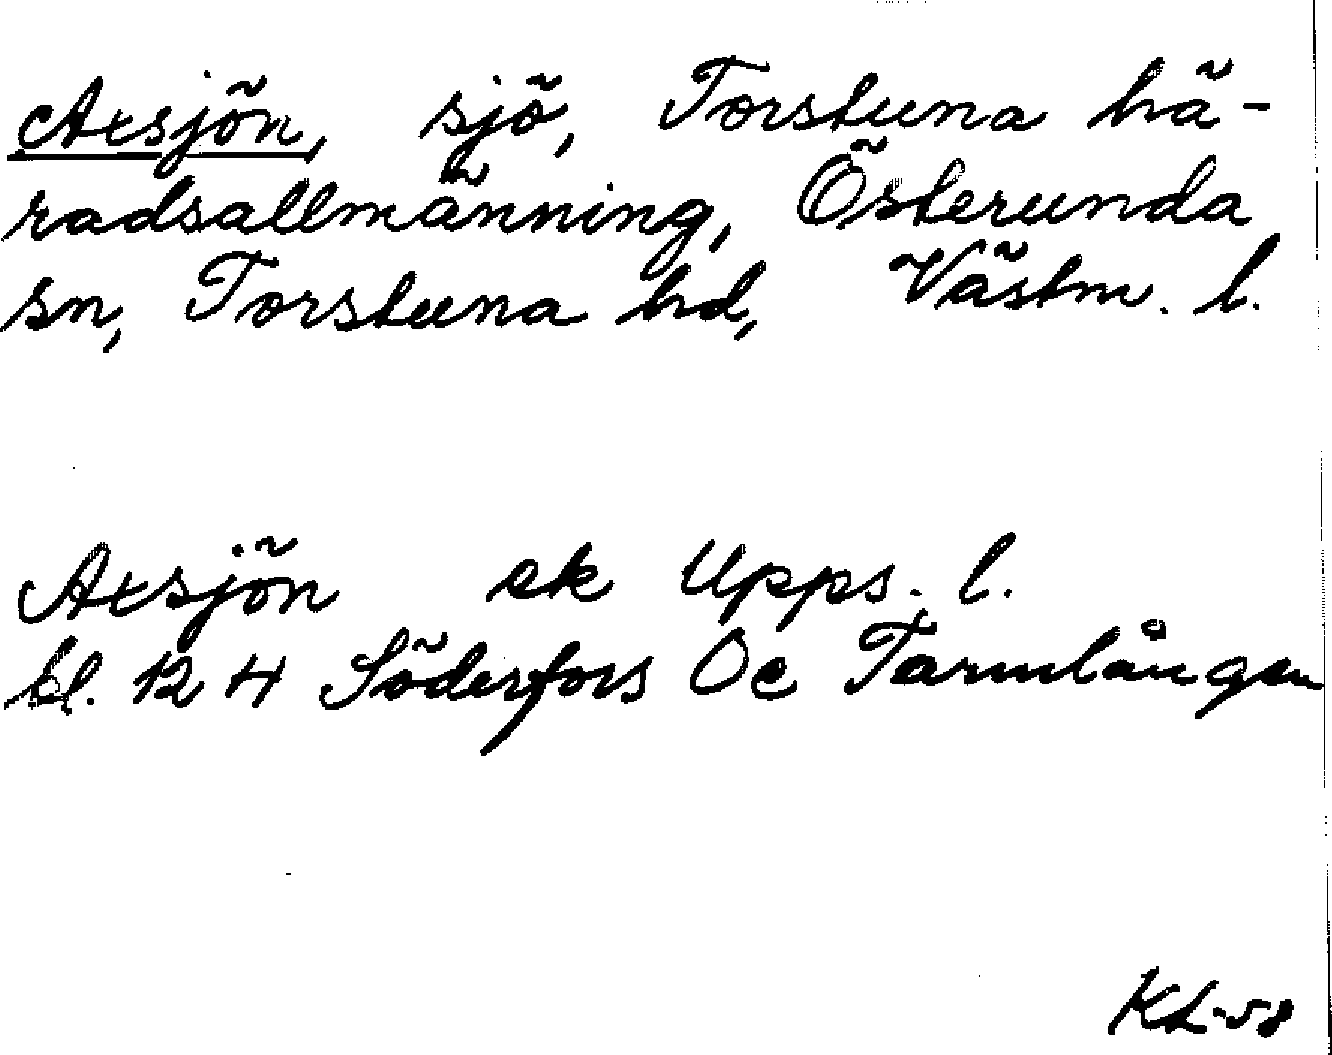 Axsjön, sjö, Torstuna hä-
radsallmänning, Österunda
sn, Torstuna hd, Västm. l.
Axsjön ek Upps. l.
bl. 12 H Söderfors Oe Tarmlången
KL-58